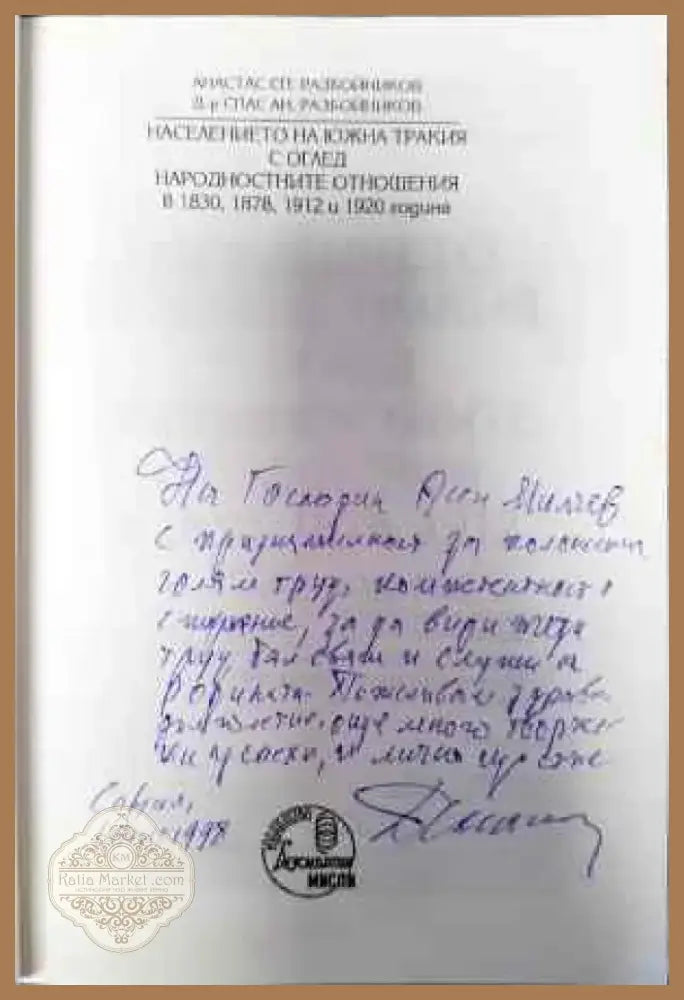 АНАСТАС СП. РАЗБОЙНИКОВ
Д-р СПАС АН. РАЗБОЙНИКОВ
НАСЕЛЕНИЕТО НА ЮЖНА ТРАКИЯ
С ОГЛЕД
НАРОДНОСТНИТЕ ОТНОШЕНИЯ
В 1830, 1878, 1912 и 1920 година
На Господин Асен Милчев
с признателност за положения
голям труд, компетентност и
за да види този
труд бял свят и служи на
Родината. Пожелавам здраве
дълголетие, още много творчес
ки успехи, и лично щастие
София,
1998
ИЗДАТЕЛСТВО
МИСЪЛ
KM
Kalia Market .com